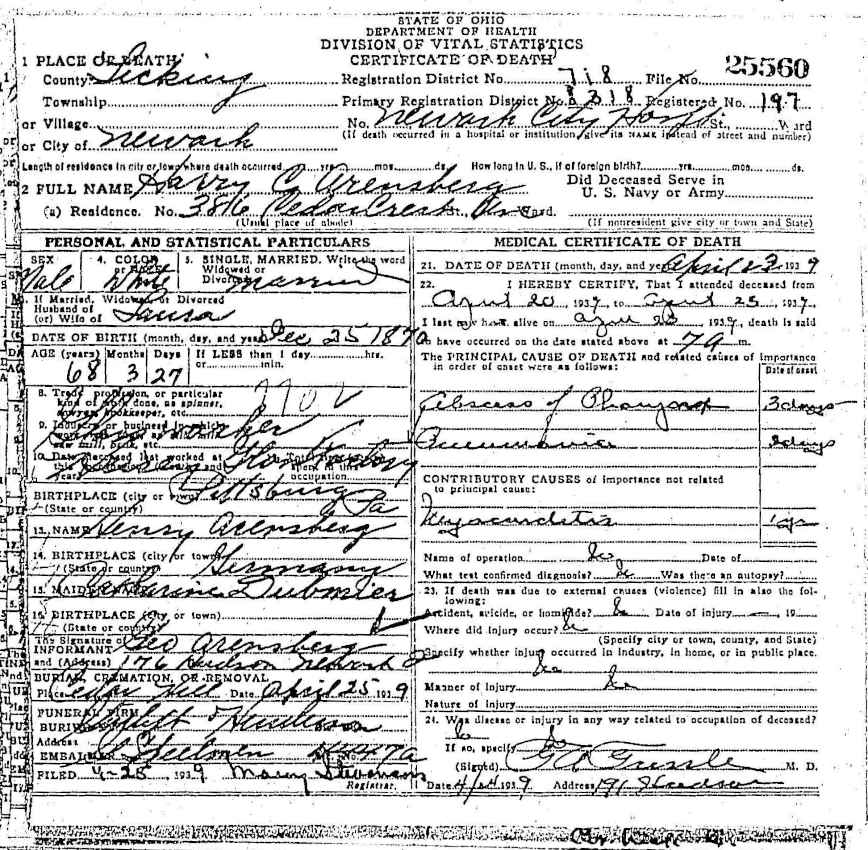 STATE OF OHIO
DEPARTMENT OF HEALTH
DIVISION OF VITAL STATISTICS
CERTIFICATE OF DEATH
1 PLACE OF DEATH
County Licking Registration District No. 718 File No. 25560
Township Primary Registration District No. 8318 Registered No. 197
or Village No. Newark City Hosp. St., Ward
or City of Newark (If death occurred in a hospital or institution, give its NAME instead of street and number)
Length of residence in city or town where death occurred yrs. mos. ds. How long in U. S., if of foreign birth? yrs. mos. ds.
2 FULL NAME Harry C. Arensberg Did Deceased Serve in U. S. Navy or Army
(a) Residence. No. 386 Cedar Crest Ave St., Ward.
(Usual place of abode) (If nonresident give city or town and State)
PERSONAL AND STATISTICAL PARTICULARS
SEX 4. COLOR or RACE 5. SINGLE, MARRIED. Write the word
Widowed or
Divorced
Male White Married
If Married, Widowed or Divorced
Husband of
(or) Wife of Laura
DATE OF BIRTH (month, day, and year) Dec 25 1870
AGE (years) Months Days If LESS than 1 day hrs.
or min.
68 3 27
8. Trade, profession, or particular
kind of work done, as spinner,
sawyer, bookkeeper, etc.
9. Industry or business in which
work was done, as silk mill,
saw mill, bank, etc.
10. Date deceased last worked at
this occupation (month and
year)
occupation
BIRTHPLACE (city or town) Pittsburg
(State or country) Pa
13. NAME Henry Arensberg
14. BIRTHPLACE (city or town)
(State or country) Germany
15. MAIDEN NAME Catharine
16. BIRTHPLACE (city or town)
(State or country)
The Signature of
INFORMANT Geo Arensberg
and (Address) 176 Hudson Newark O
BURIAL, CREMATION, OR REMOVAL
Place Cedar Hill Date April 25 1939
FUNERAL FIRM
Address
EMBALMER
FILED 4-25 1939
Registrar.
MEDICAL CERTIFICATE OF DEATH
21. DATE OF DEATH (month, day, and year) April 23 1939
22. I HEREBY CERTIFY, That I attended deceased from
April 20 1939, to April 23 1939,
I last saw h alive on April 23 1939, death is said
to have occurred on the date stated above at 7 a m.
The PRINCIPAL CAUSE OF DEATH and related causes of importance
in order of onset were as follows:
Date of onset
Abscess of Pharynx 3 days
Pneumonia 2 days
CONTRIBUTORY CAUSES of importance not related
to principal cause:
Myocarditis
Name of operation Date of
What test confirmed diagnosis? Was there an autopsy?
23. If death was due to external causes (violence) fill in also the following:
Accident, suicide, or homicide? Date of injury 19
Where did injury occur?
(Specify city or town, county, and State)
Specify whether injury occurred in industry, in home, or in public place.
Manner of injury
Nature of injury
24. Was disease or injury in any way related to occupation of deceased?
If so, specify
(Signed) M. D.
Date 4/24 1939 Address 191 Hudson